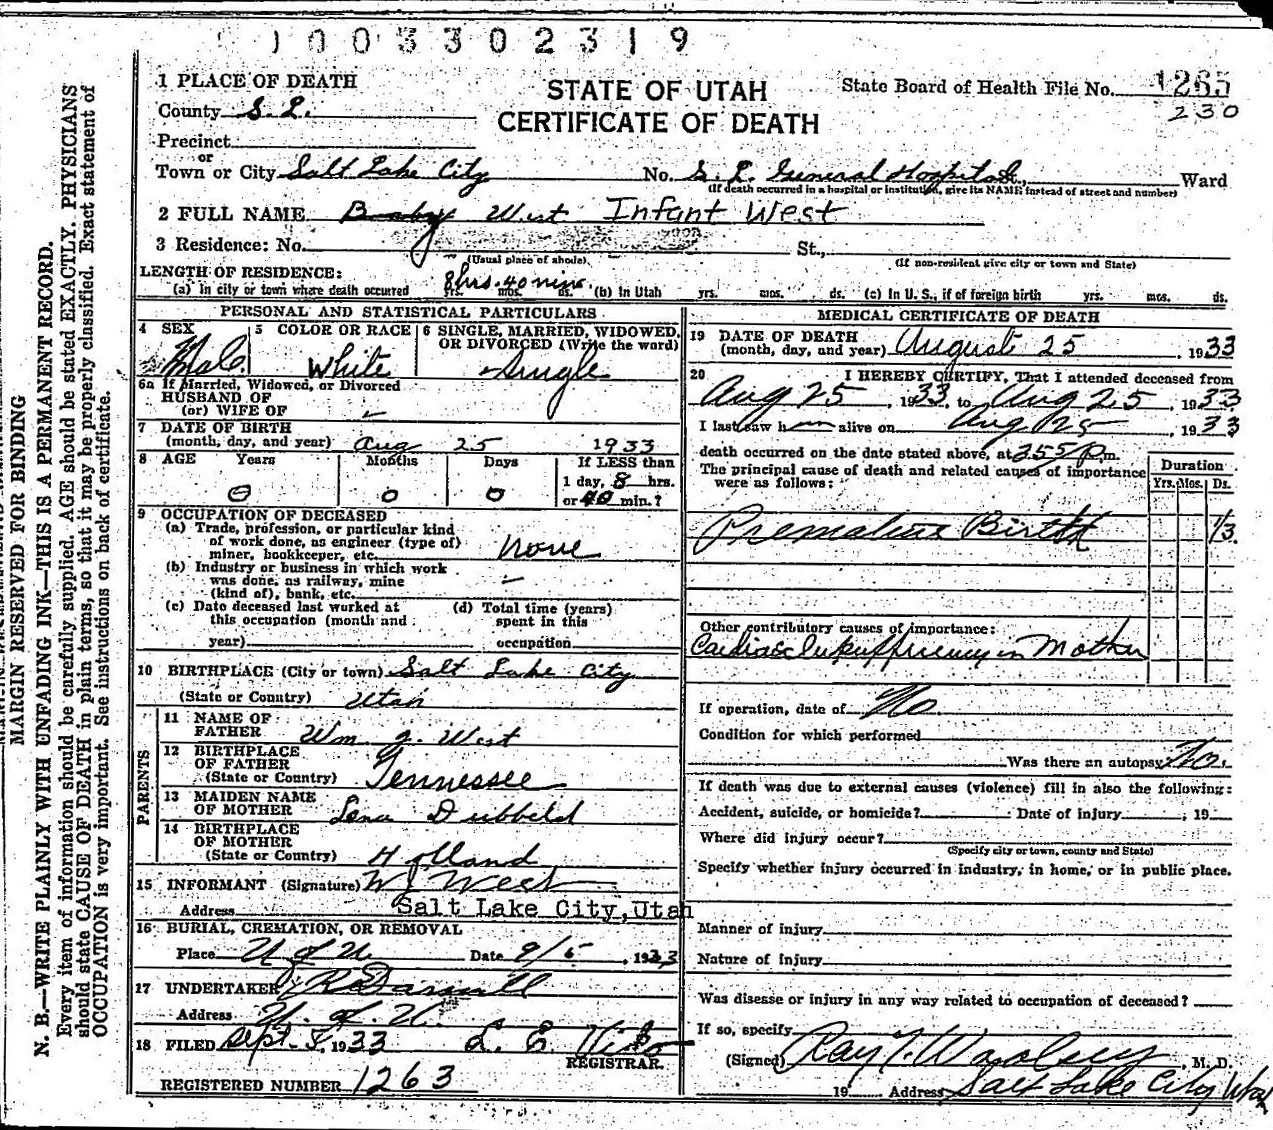 1003302319
1 PLACE OF DEATH
STATE OF UTAH
CERTIFICATE OF DEATH
State Board of Health File No. 1265
230
County S. L.
Precinct
or
Town or City Salt Lake City No. S. L. General Hospital, Ward
(If death occurred in a hospital or institution, give its NAME instead of street and number)
2 FULL NAME Baby West Infant West
3 Residence: No. St.,
(Usual place of abode) (If non-resident give city or town and State)
LENGTH OF RESIDENCE:
(a) In city or town where death occurred 8 hrs. 40 mins. yrs. mos. ds. (b) In Utah yrs. mos. ds. (c) In U. S., if of foreign birth yrs. mos. ds.
PERSONAL AND STATISTICAL PARTICULARS
4 SEX Male
5 COLOR OR RACE White
6 SINGLE, MARRIED, WIDOWED, OR DIVORCED (Write the word) Single
6a If Married, Widowed, or Divorced
HUSBAND OF
(or) WIFE OF –
7 DATE OF BIRTH
(month, day, and year) Aug 25 1933
8 AGE Years Months Days If LESS than
0 0 0 1 day, 8 hrs.
or 40 min.?
9 OCCUPATION OF DECEASED
(a) Trade, profession, or particular kind
of work done, as engineer (type of)
miner, bookkeeper, etc. None
(b) Industry or business in which work
was done, as railway, mine
(kind of), bank, etc. –
(c) Date deceased last worked at
this occupation (month and
year)
(d) Total time (years)
spent in this
occupation
10 BIRTHPLACE (City or town) Salt Lake City
(State or Country) Utah
PARENTS
11 NAME OF
FATHER Wm. J. West
12 BIRTHPLACE
OF FATHER
(State or Country) Tennessee
13 MAIDEN NAME
OF MOTHER Lena Dubbeld
14 BIRTHPLACE
OF MOTHER
(State or Country) Holland
15 INFORMANT (Signature) W J West
Address Salt Lake City, Utah
16 BURIAL, CREMATION, OR REMOVAL
Place U of U. Date 9/5, 1933
17 UNDERTAKER
Address U. of U.
18 FILED Sept. 1933 L. E.
REGISTRAR.
REGISTERED NUMBER 1263
MEDICAL CERTIFICATE OF DEATH
19 DATE OF DEATH
(month, day, and year) August 25, 1933
20 I HEREBY CERTIFY, That I attended deceased from
Aug 25, 1933, to Aug 25, 1933
I last saw h alive on Aug 25, 1933
death occurred on the date stated above, at 355 P. m.
The principal cause of death and related causes of importance
were as follows:
Duration
Yrs. Mos. Ds.
Premature Birth 1/3.
Other contributory causes of importance:
Cardiac Insufficiency in Mother
If operation, date of No
Condition for which performed
Was there an autopsy No.
If death was due to external causes (violence) fill in also the following:
Accident, suicide, or homicide? Date of injury , 19
Where did injury occur?
(Specify city or town, county and State)
Specify whether injury occurred in industry, in home, or in public place.
Manner of injury
Nature of injury
Was disease or injury in any way related to occupation of deceased?
If so, specify
(Signed) Ray T. Woolsey, M. D.
19 Address Salt Lake City Utah
MARGIN RESERVED FOR BINDING
N. B.—WRITE PLAINLY WITH UNFADING INK—THIS IS A PERMANENT RECORD.
Every item of information should be carefully supplied. AGE should be stated EXACTLY. PHYSICIANS
should state CAUSE OF DEATH in plain terms, so that it may be properly classified. Exact statement of
OCCUPATION is very important. See instructions on back of certificate.